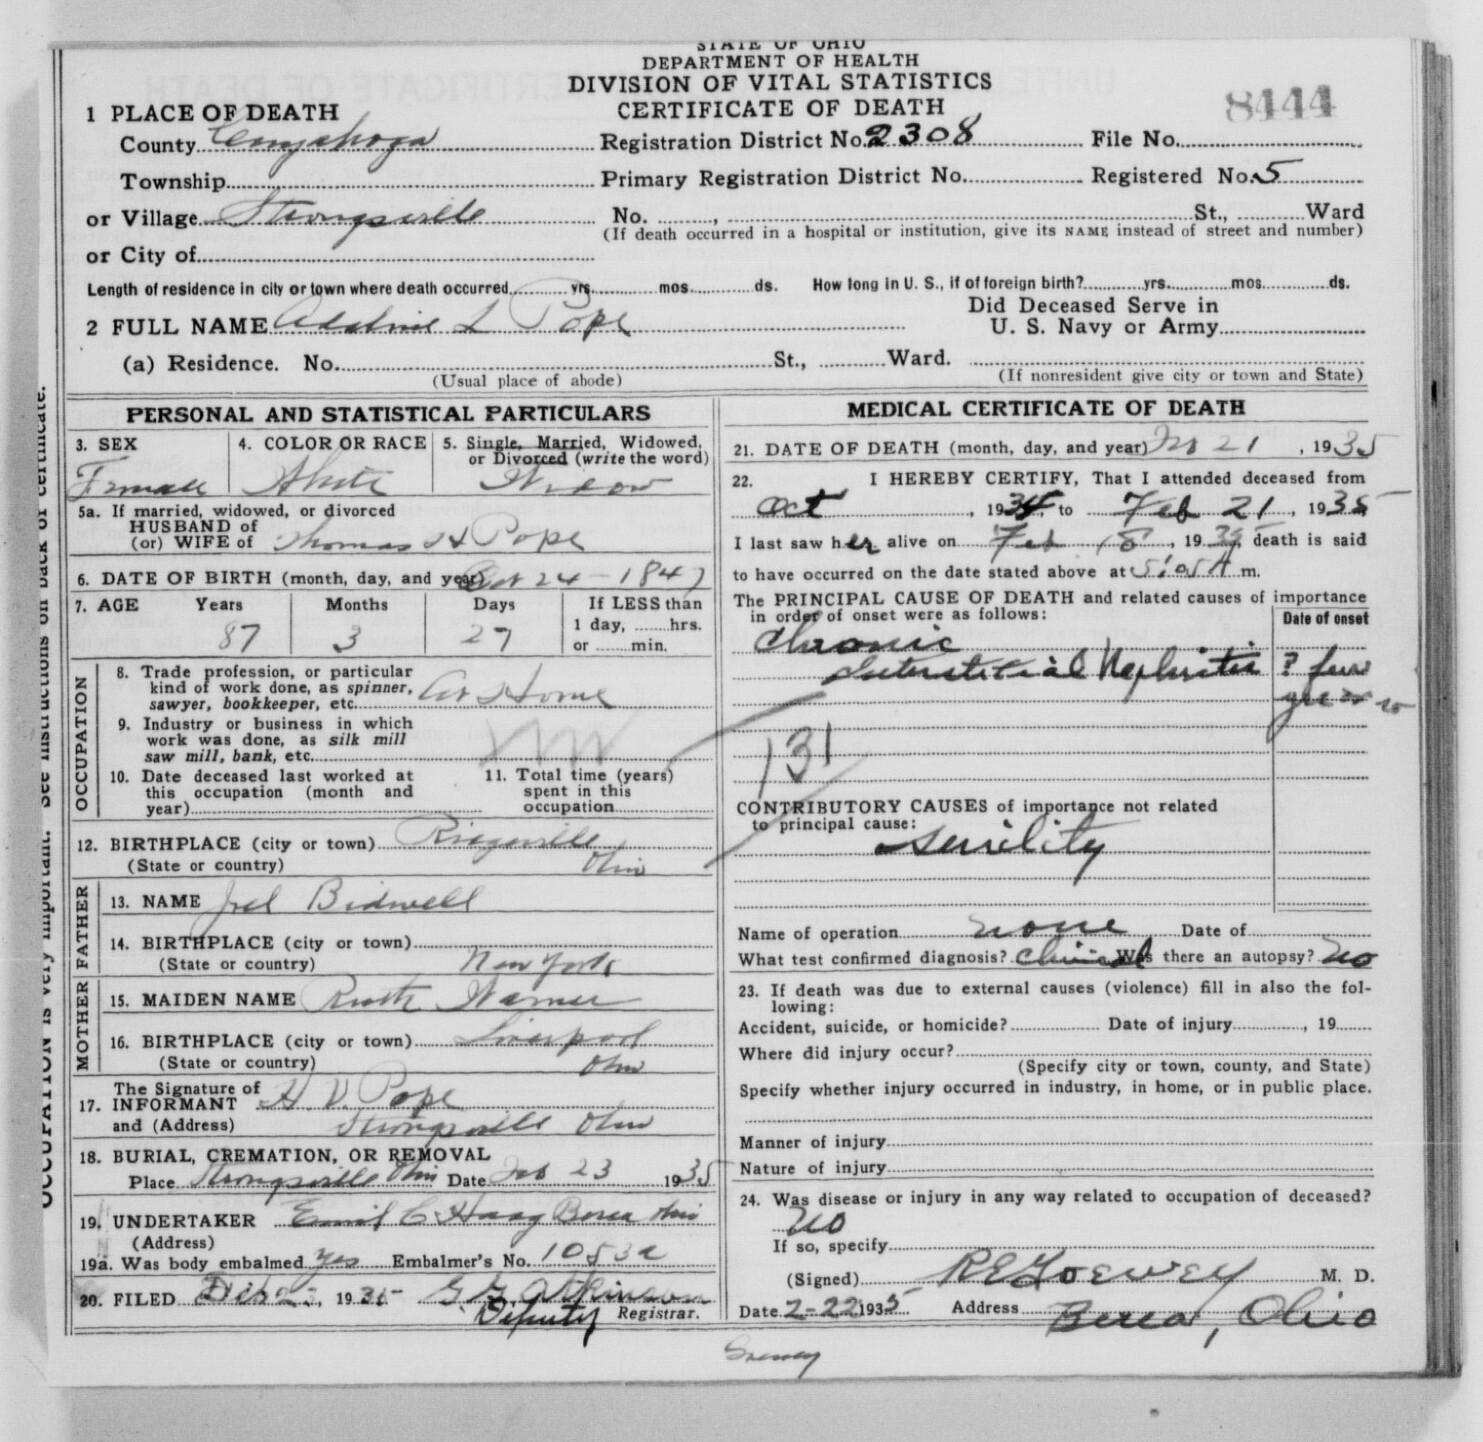 STATE OF OHIO
DEPARTMENT OF HEALTH
DIVISION OF VITAL STATISTICS
CERTIFICATE OF DEATH
8444
1 PLACE OF DEATH
County Cuyahoga Registration District No. 2308 File No.
Township Primary Registration District No. Registered No. 5
or Village Strongsville No. , St., Ward
(If death occurred in a hospital or institution, give its NAME instead of street and number)
or City of
Length of residence in city or town where death occurred yrs. mos. ds. How long in U. S., if of foreign birth? yrs. mos. ds.
2 FULL NAME Adaline L Pope Did Deceased Serve in U. S. Navy or Army
(a) Residence. No. St., Ward.
(Usual place of abode) (If nonresident give city or town and State)
PERSONAL AND STATISTICAL PARTICULARS
3. SEX 4. COLOR OR RACE 5. Single, Married, Widowed, or Divorced (write the word)
Female White Widow
5a. If married, widowed, or divorced
HUSBAND of
(or) WIFE of Thomas H Pope
6. DATE OF BIRTH (month, day, and year) 24 - 1847
7. AGE Years Months Days If LESS than
87 3 27 1 day, hrs.
or min.
OCCUPATION
8. Trade profession, or particular
kind of work done, as spinner,
sawyer, bookkeeper, etc. At Home
9. Industry or business in which
work was done, as silk mill
saw mill, bank, etc.
10. Date deceased last worked at
this occupation (month and
year)
11. Total time (years)
spent in this
occupation
12. BIRTHPLACE (city or town) Ridgeville
(State or country) Ohio
FATHER
13. NAME Joel Bidwell
14. BIRTHPLACE (city or town)
(State or country) New York
MOTHER
15. MAIDEN NAME Ruth Warner
16. BIRTHPLACE (city or town) Liverpool
(State or country) Ohio
The Signature of
17. INFORMANT H V. Pope
and (Address) Strongsville Ohio
18. BURIAL, CREMATION, OR REMOVAL
Place Strongsville Ohio Date Feb 23 1935
19. UNDERTAKER Emil C Haag Berea Ohio
(Address)
19a. Was body embalmed yes Embalmer's No. 1053a
20. FILED Feb 23, 1935 G G Atkinson
Deputy Registrar.
MEDICAL CERTIFICATE OF DEATH
21. DATE OF DEATH (month, day, and year) Feb 21, 1935
22. I HEREBY CERTIFY, That I attended deceased from
Oct, 1934, to Feb 21, 1935
I last saw her alive on Feb 18, 1935, death is said
to have occurred on the date stated above at 5:05 A m.
The PRINCIPAL CAUSE OF DEATH and related causes of importance
in order of onset were as follows: Date of onset
Chronic
Interstitial Nephritis ? few
years
131
CONTRIBUTORY CAUSES of importance not related
to principal cause:
senility
Name of operation none Date of
What test confirmed diagnosis? Clinical Was there an autopsy? No
23. If death was due to external causes (violence) fill in also the fol-
lowing:
Accident, suicide, or homicide? Date of injury , 19
Where did injury occur?
(Specify city or town, county, and State)
Specify whether injury occurred in industry, in home, or in public place.
Manner of injury
Nature of injury
24. Was disease or injury in any way related to occupation of deceased?
No
If so, specify
(Signed) R E Goewey M. D.
Date 2-22 1935 Address Berea, Ohio
Goewey
OCCUPATION is very important. See instructions on back of certificate.